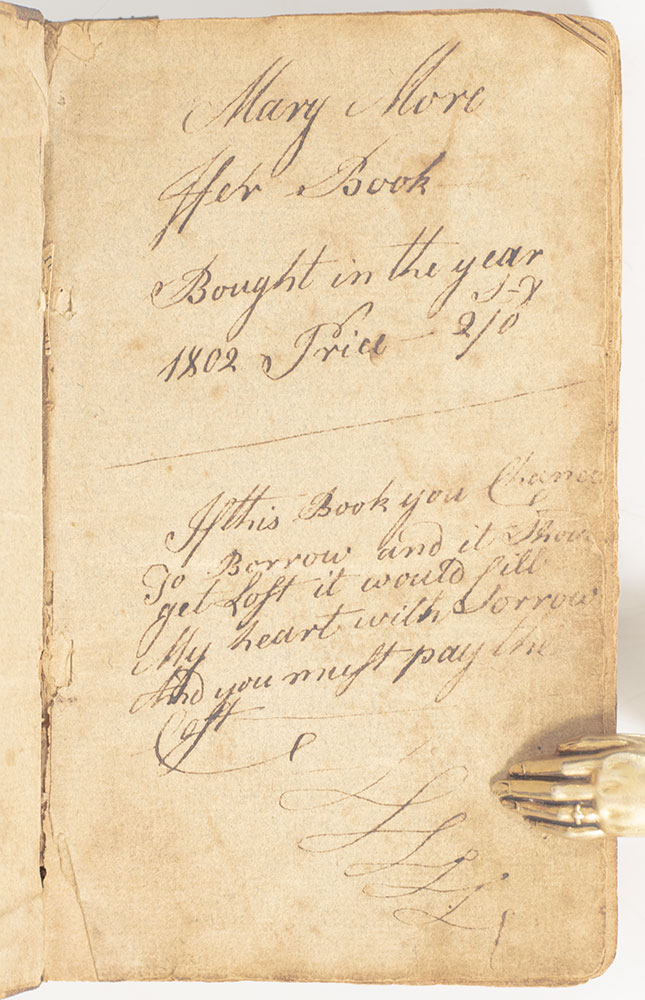 Mary More
Her Book
Bought in the year
1802 Price — 2/0
If this Book you Chance
To Borrow and it Shou
get Lost it would fill
My heart with Sorrow
And you must pay the
Cost